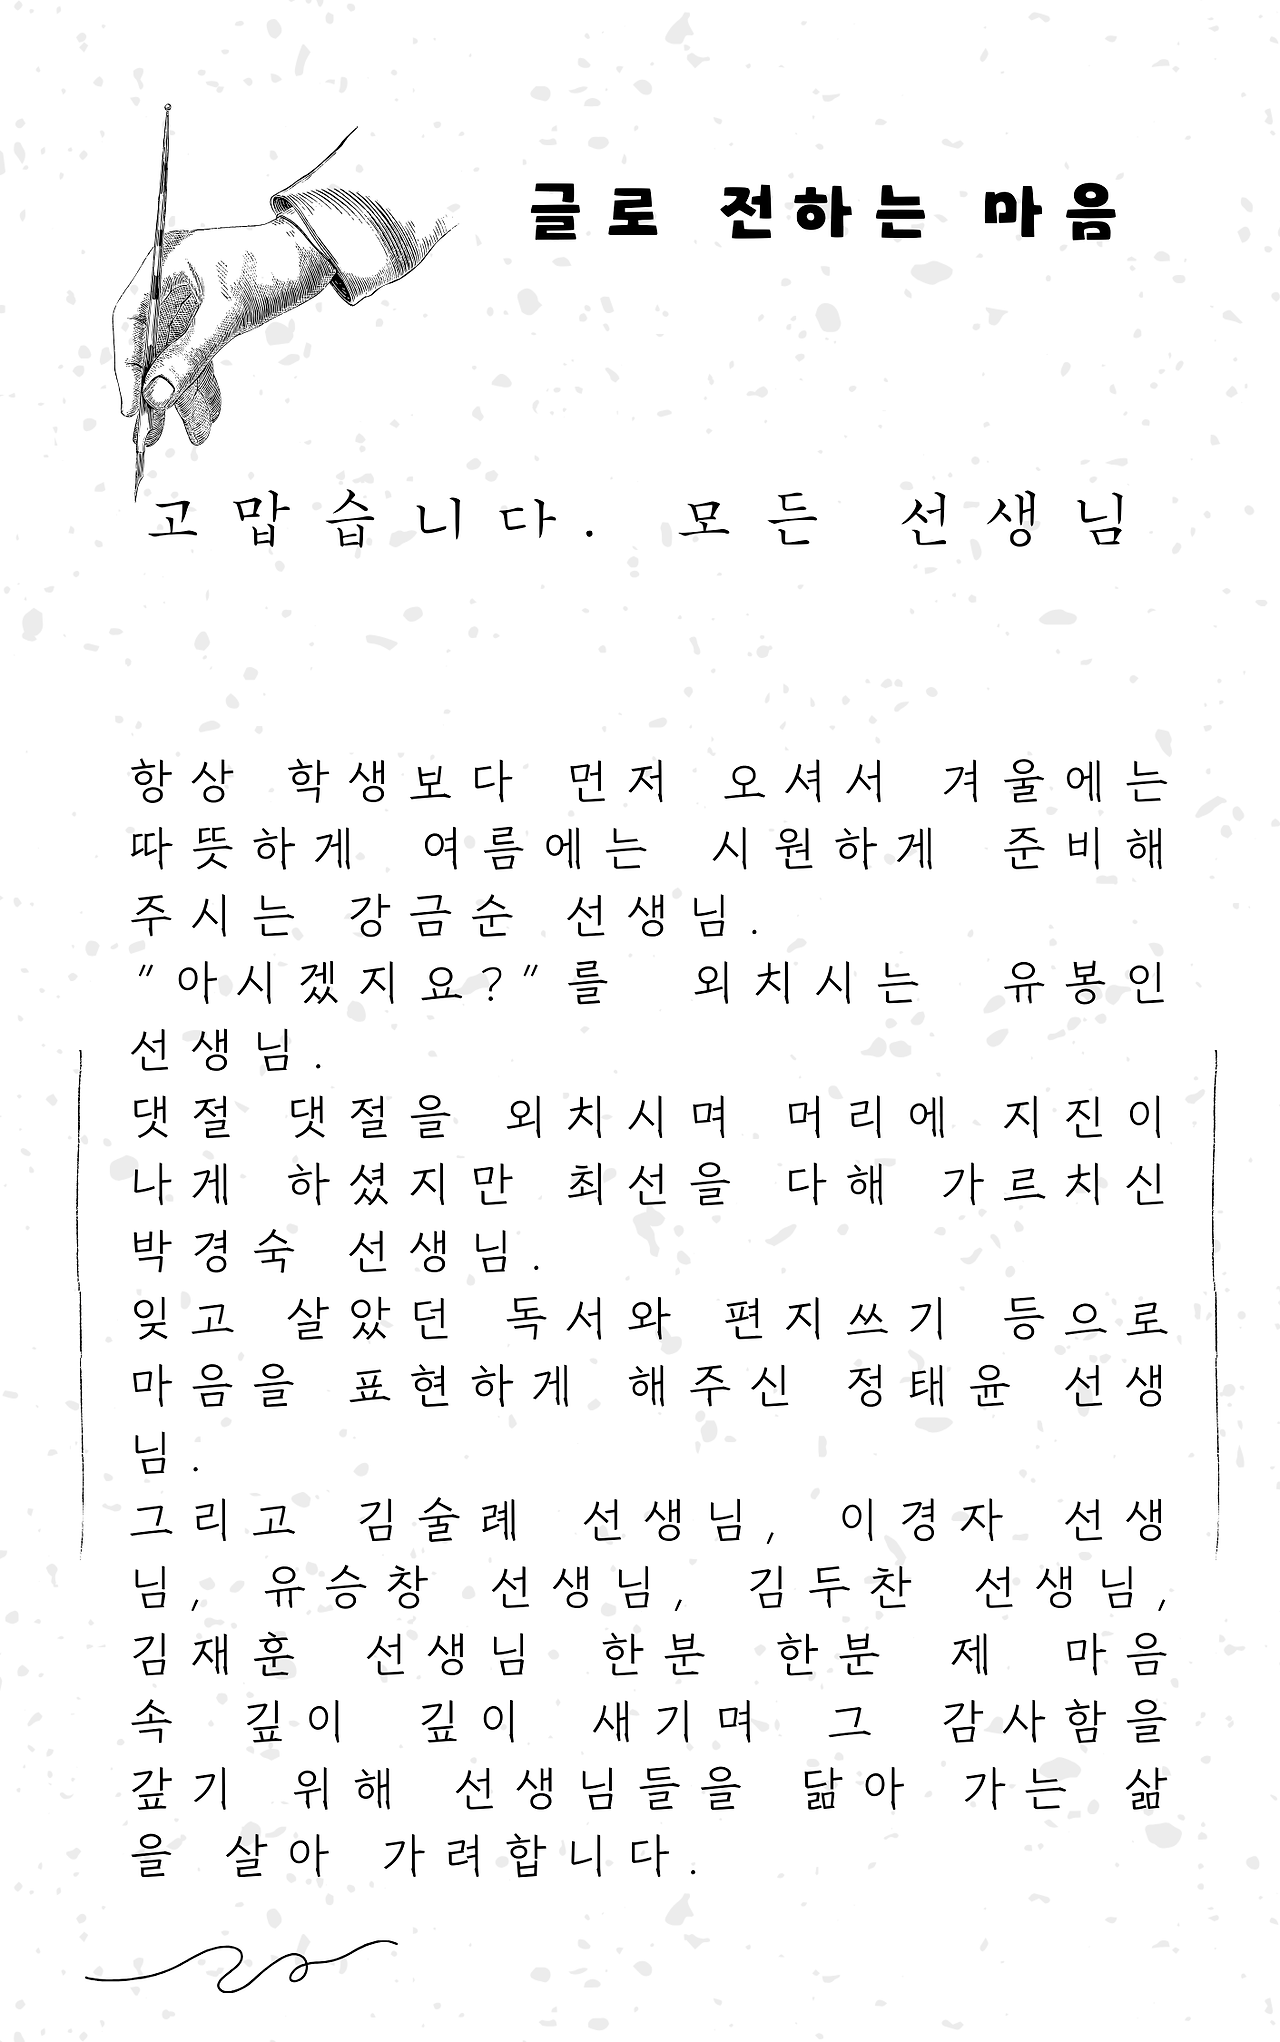 글로 전하는 마음
고맙습니다. 모든 선생님
항상 학생보다 먼저 오셔서 겨울에는
따뜻하게 여름에는 시원하게 준비해
주시는 강금순 선생님.
"아시겠지요?"를 외치시는 유봉인
선생님.
댓절 댓절을 외치시며 머리에 지진이
나게 하셨지만 최선을 다해 가르치신
박경숙 선생님.
잊고 살았던 독서와 편지쓰기 등으로
마음을 표현하게 해주신 정태윤 선생
님.
그리고 김술례 선생님, 이경자 선생
님, 유승창 선생님, 김두찬 선생님,
김재훈 선생님 한분 한분 제 마음
속 깊이 깊이 새기며 그 감사함을
갚기 위해 선생님들을 닮아 가는 삶
을 살아 가려합니다.